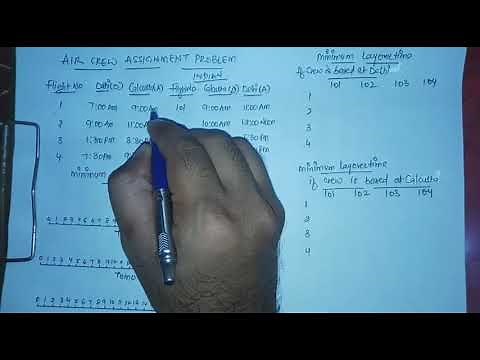 AIR CREW ASSIGNMENT PROBLEM
INDIAN
Flight No Delhi(D) Calcutta(A) Flight No Calcutta(D) Delhi(A)
1 7:00 AM 9:00 AM 101 9:00 AM 11:00 AM
2 9:00 AM 11:00 10:00 AM 12:00 Noon
3 1:30 PM 3:30 :30 PM
4 7:30 PM 9 PM
Minimum
0 1 2 3 4 5 6 7 8
0 1 2 3 4 5 6 7 8 9 10
Tomo
0 1 2 3 4 5 6 7 8 9 10 11 12 13
Minimum Layovertime
if Crew is based at Delhi
101 102 103 104
1
2
3
4
Minimum Layovertime
if Crew is based at Calcutta
101 102 103 104
1
2
3
4